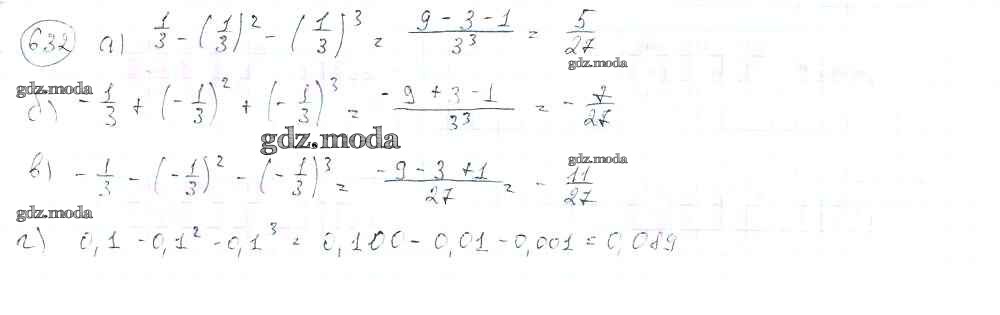 632 а) 1/3 - (1/3)² - (1/3)³ = (9 - 3 - 1)/3³ = 5/27
gdz.moda
gdz.moda
б) -1/3 + (-1/3)² + (-1/3)³ = (-9 + 3 - 1)/3³ = -7/27
gdz.moda
gdz.moda
в) -1/3 - (-1/3)² - (-1/3)³ = (-9 - 3 + 1)/27 = -11/27
gdz.moda
г) 0,1 - 0,1² - 0,1³ = 0,100 - 0,01 - 0,001 = 0,089